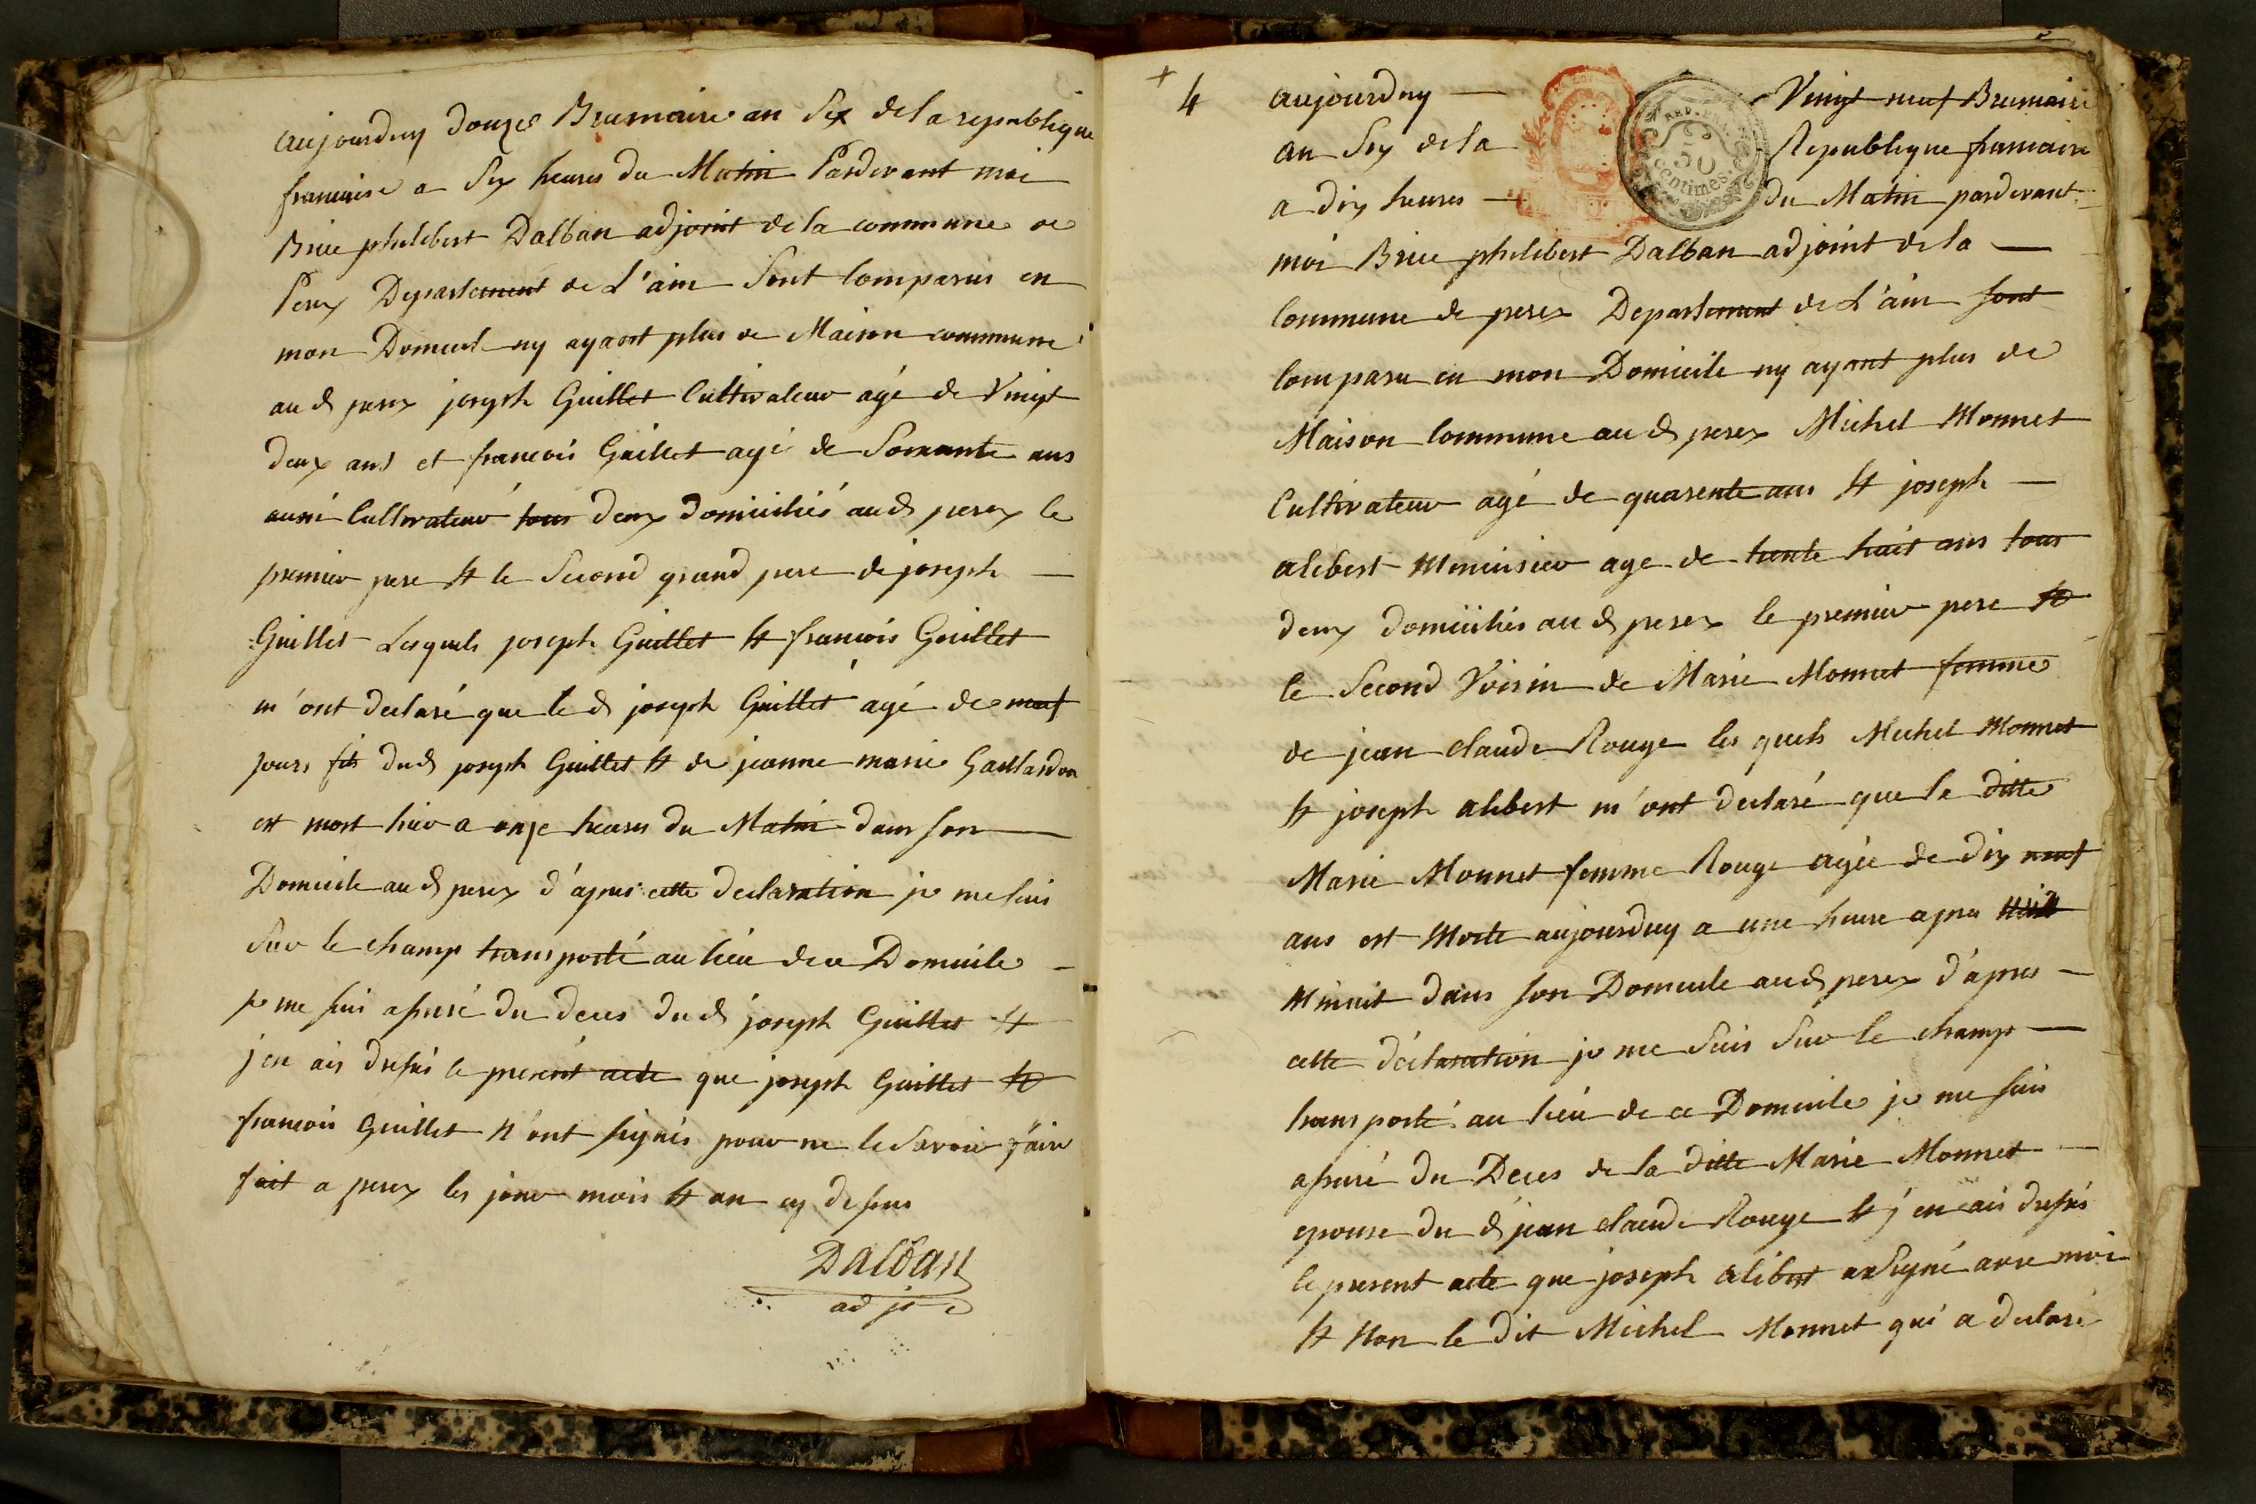 aujourduy douze Brumaire an Six de la republique
francaise a Six heures du Matin Pardevant moi
Brice philibert Dalban adjoint de la commune de
Perex Departement de L'ain Sont Comparus en
mon Domicile ny ayant plus de Maison commune
au d perex joseph Guillet Cultivateur agé de Vingt
deux ans et francois Guillet agé de Soixante ans
aussi Cultivateur tous deux domiciliés au d perex le
premier pere et le Second grand pere de joseph
Guillet Lesquels joseph Guillet et francois Guillet
m'ont declaré que le d joseph Guillet agé de neuf
jours fils du d joseph Guillet et de jeanne marie Gaillardon
est mort hier a onze heures du Matin dans son
Domicile au d perex d'apres cette declaration je me suis
Sur le champ transporté au lieu de ce Domicile
je me suis assuré du deces du d joseph Guillet et
j'en ais dressés le present acte que joseph Guillet et
francois Guillet n'ont signés pour ne le Savoir faire
fait a perex les jour mois et an cy dessus
Dalban
adj
4 aujourduy Vingt neuf Brumaire
an Six de la Republique francaise
a dix heures du Matin pardevant
50 Centimes
moi Brice philibert Dalban adjoint de la
Commune de perex Departement de L'ain sont
Comparu en mon Domicile ny ayant plus de
Maison Commune au d perex Michel Monnet
Cultivateur agé de quarente ans et joseph
alibert Menuisier age de trente huit ans tous
deux domiciliés au d perex le premier pere et
le Second Voisin de Marie Monnet femme
de jean claude Rouge les quels Michel Monnet
et joseph alibert m'ont declaré que la ditte
Marie Monnet femme Rouge agée de dix neuf
ans est Morte aujourduy a une heure apres
Minuit dans son Domicile au d perex d'apres
cette déclaration je me Suis Sur le champ
transporté au lieu de ce Domicile je me suis
assuré du Deces de la ditte Marie Monnet
epouse du d jean claude Rouge et j'en ais dressés
le present acte que joseph alibert a Signé avec moi
et Non le dit Michel Monnet qui a declaré